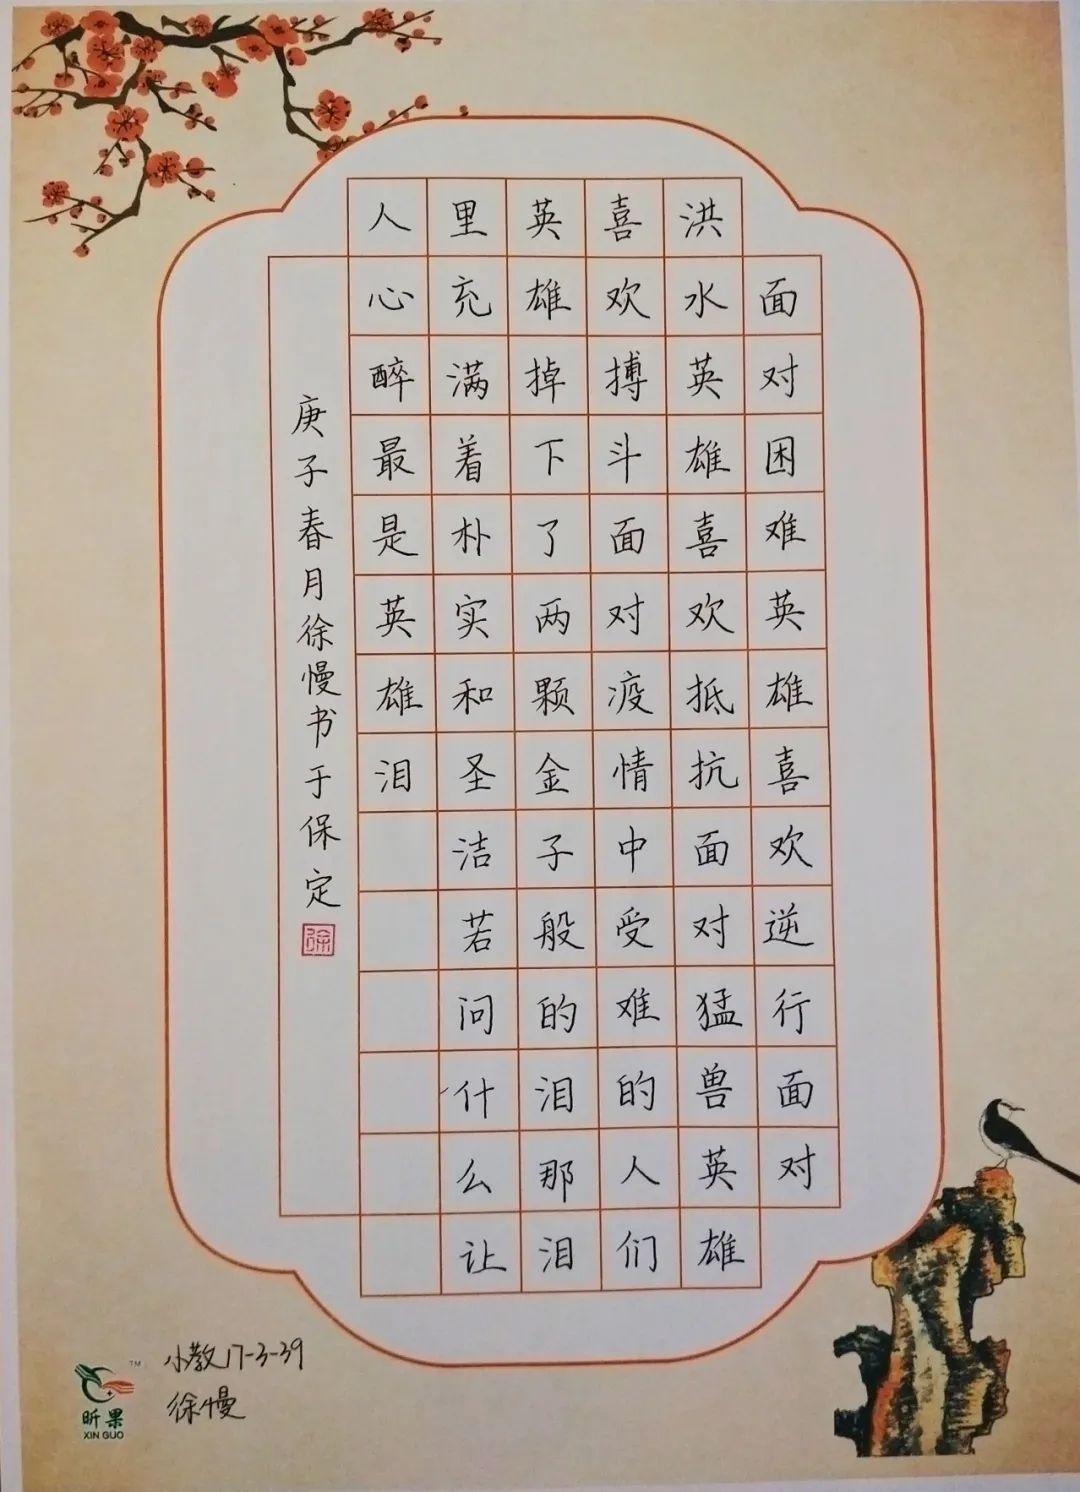 面对困难英雄喜欢逆行面对
洪水英雄喜欢抵抗面对猛兽英雄
喜欢搏斗面对疫情中受难的人们
英雄掉下了两颗金子般的泪那泪
里充满着朴实和圣洁若问什么让
人心醉最是英雄泪
庚子春月徐慢书于保定
徐
小教17-3-39
徐慢
TM
昕果
XIN GUO